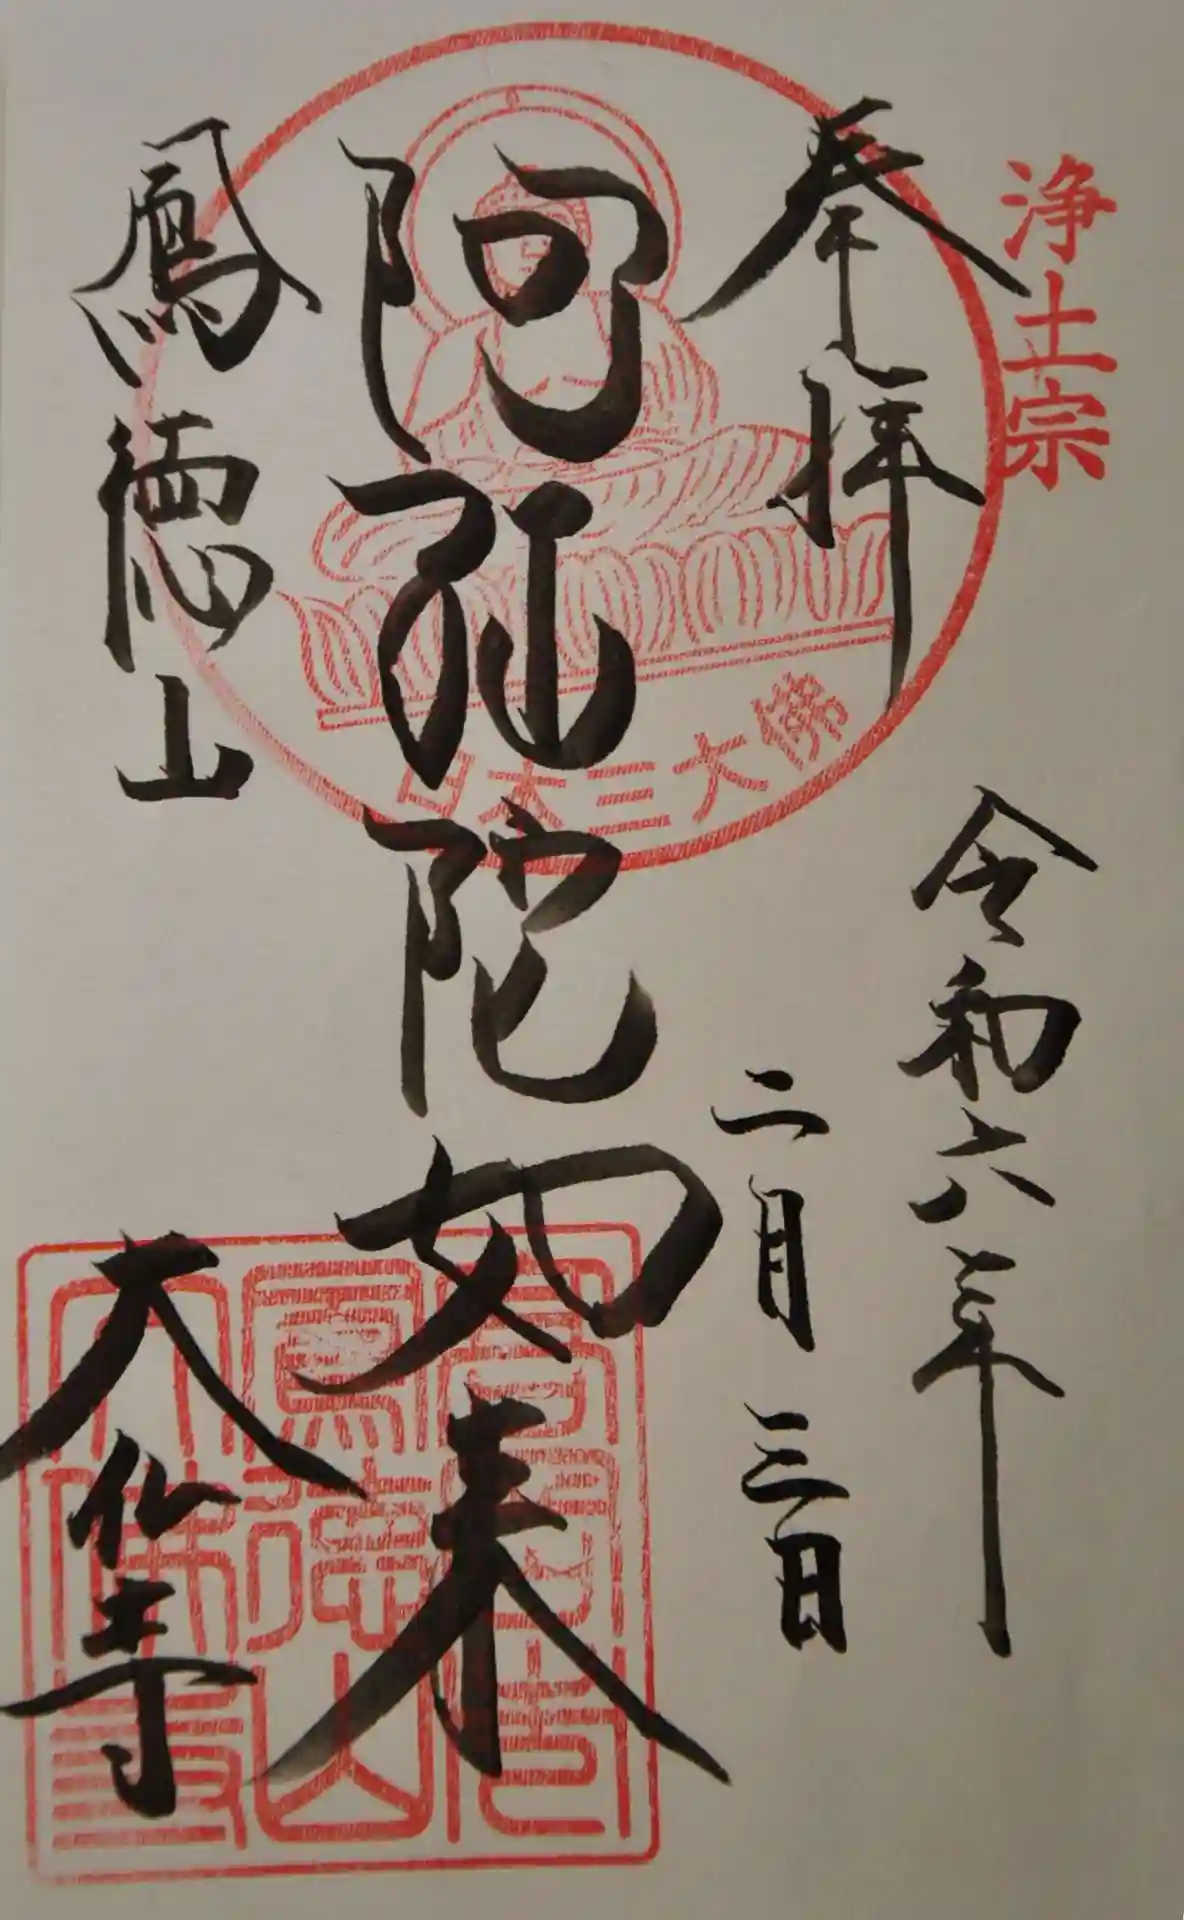 浄土宗
奉拝
令和六年
二月三日
阿弥陀如来
鳳徳山
大仏寺
日本三大佛
鳳徳山
大佛寺